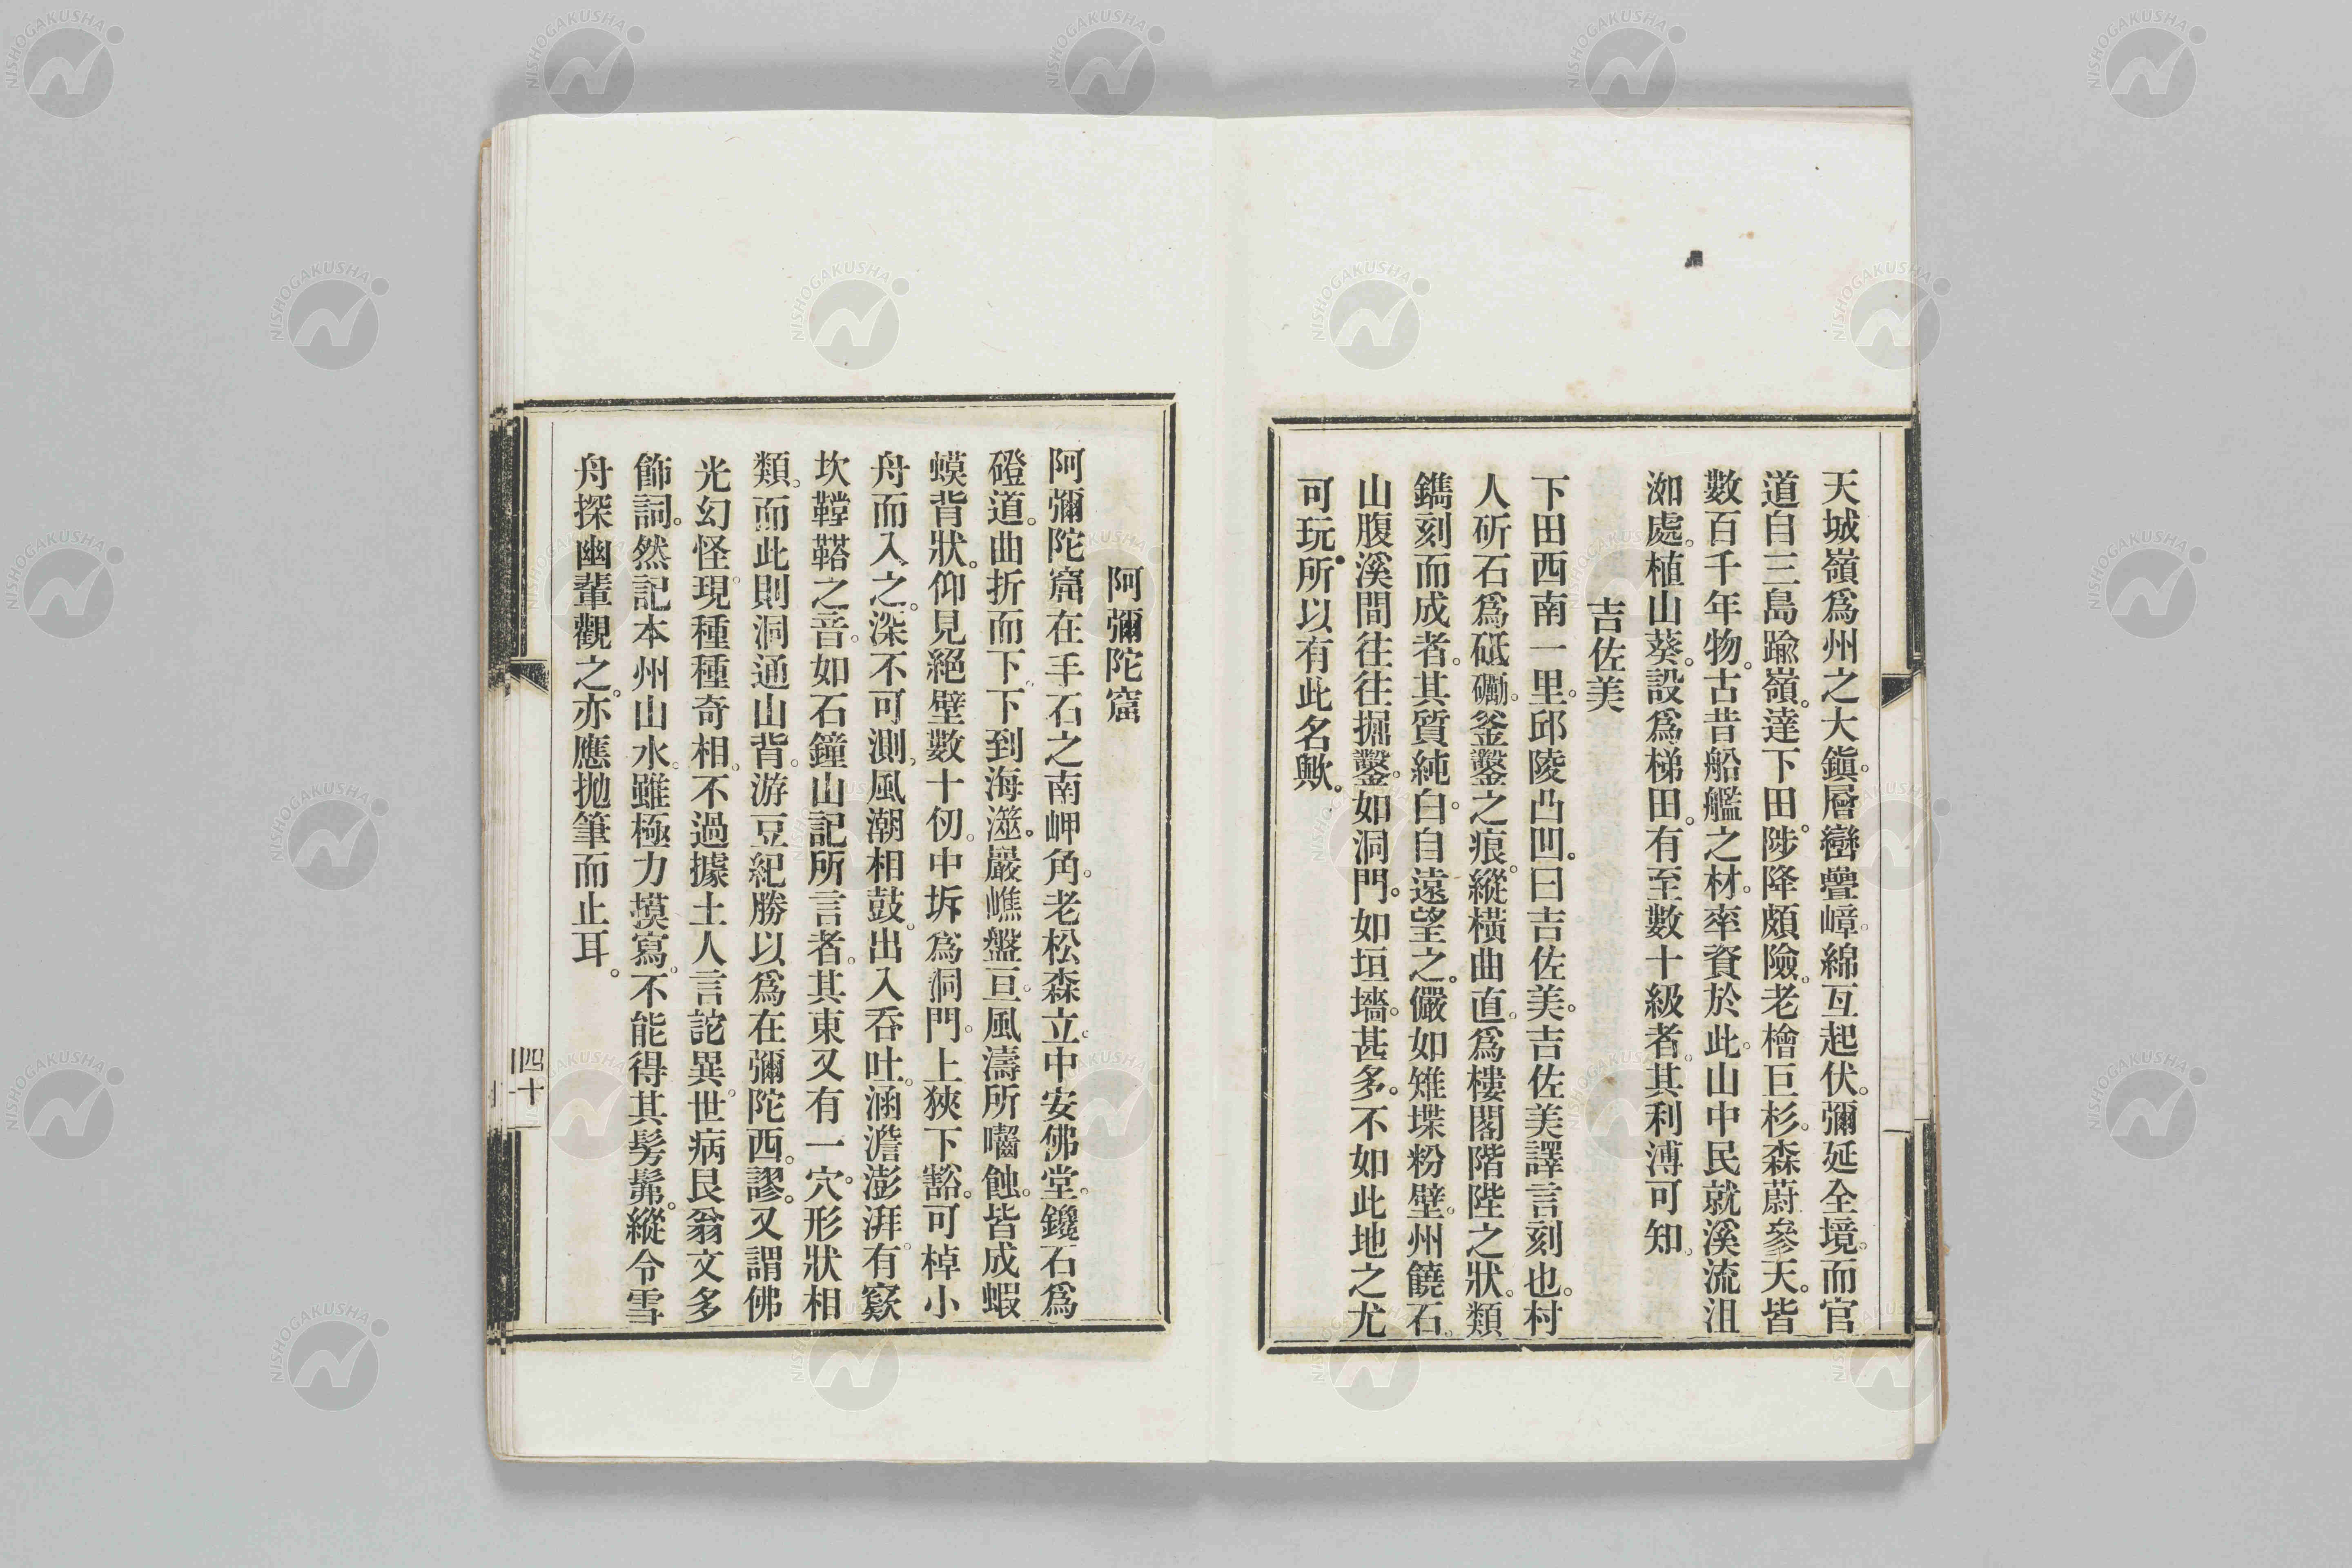 天城嶺爲州之大鎭。層巒疊嶂。綿亙起伏。彌延全境。而官
道自三島踰嶺。達下田。陟降頗險。老檜巨杉。森蔚參天。皆
數百千年物。古昔船艦之材。率資於此。山中民就溪流沮
洳處。植山葵。設爲梯田。有至數十級者。其利溥可知。
吉佐美
下田西南一里。邱陵凸凹。曰吉佐美。吉佐美譯言刻也。村
人斫石爲砥礪。釜鑿之痕。縱橫曲直。爲樓閣階陛之狀。類
鐫刻而成者。其質純白。自遠望之。儼如雉堞粉壁。州饒石。
山腹溪間往往掘鑿。如洞門。如垣墻。甚多。不如此地之尤
可玩。所以有此名歟。
阿彌陀窟
阿彌陀窟在手石之南岬角。老松森立。中安佛堂。鑱石爲
磴道。曲折而下。下到海澨。巖嶕盤亘。風濤所囓蝕。皆成蝦
蟆背狀。仰見絕壁數十仞。中坼爲洞門。上狹下豁。可棹小
舟而入之。深不可測。風潮相鼓。出入呑吐。涵澹澎湃。有窾
坎鞺鞳之音。如石鐘山記所言者。其東又有一穴。形狀相
類。而此則洞通山背。游豆紀勝以爲在彌陀西。謬。又謂佛
光幻怪。現種種奇相。不過據土人言詑異。世病艮翁文多
飾詞。然記本州山水。雖極力摸寫。不能得其髣髴。縱令雪
舟探幽輩觀之。亦應拋筆而止耳。
四十
NISHOGAKUSHA